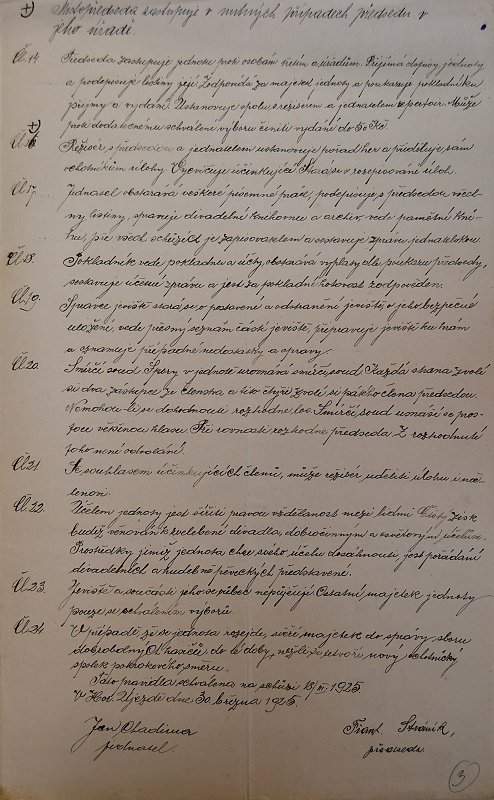 +) Místopředseda zastupuje v nutných případech předsedu v
jeho úřadě.
Čl. 14. Předseda zastupuje jednotu proti osobám třetím a úřadům. Přijímá dopisy jednoty
a podepisuje listiny její. Zodpovídá za majetek jednoty a poukazuje pokladníku
příjmy a vydání. Ustanovuje spolu s režisérem a jednatelem repertoir. Může
proti dodatečnému schválení výboru činiti vydání do 50 Kč.
+)
Čl. 16 Režisér, s předsedou a jednatelem ustanovuje pořad her a přiděluje sám
ochotníkům úlohy. Vycvičuje účinkující. Stará se o rozepisování úloh.
Čl. 17. Jednatel obstarává veškeré písemné práce, podepisuje s předsedou všech-
ny listiny, spravuje divadelní knihovnu a archiv, vede pamětní kni-
hu, při všech schůzích je zapisovatelem a sestavuje zprávu jednatelskou.
Čl. 18. Pokladník vede pokladnu a účty, obstarává výplaty dle poukazu předsedy,
sestavuje účetní zprávu a jest za pokladní hotovost zodpověden.
Čl. 19. Správce jeviště stará se o postavení a odstranění jeviště, o jeho bezpečné
uložení, vede přesný seznam částí jeviště, připravuje jeviště ku hrám
a oznamuje případné nedostatky a opravy.
Čl. 20. Smírčí soud. Spory v jednotě urovnává smírčí soud. Každá strana zvolí
si dva zástupce ze členstva a tito čtyři zvolí si pátého člena předsedou.
Nemohou-li se dohodnouti rozhodne los. Smírčí soud usnáší se pros-
tou většinou hlasů. Při rovnosti rozhodne předseda. Z rozhodnutí
toho není odvolání.
Čl. 21. S souhlasem účinkujících členů, může režisér uděliti úlohu i neč-
lenovi.
Čl. 22. Účelem jednoty jest šířiti pravou vzdělanost mezi lidmi. Čistý zisk
budiž věnován k zvelebení divadla, dobročinným a osvětovým účelům.
Prostředky jimiž jednota chce svého účelu dosáhnouti, jest pořádání
divadelních a hudebně pěveckých představení.
Čl. 23. Jeviště a součásti jeho se vůbec nepůjčuje. Ostatní majetek jednoty
pouze se schválením výboru.
Čl. 24. V případě, že se jednota rozejde, svěří majetek do správy sboru
dobrovolných hasičů, do té doby, nežli se utvoří nový ochotnický
spolek pokrokového směru.
Tato pravidla schválena na schůzi 15/III. 1925.
V Hor. Újezdě dne 30. března 1925.
Jan Chadima
jednatel.
Frant. Stráník,
předseda
3